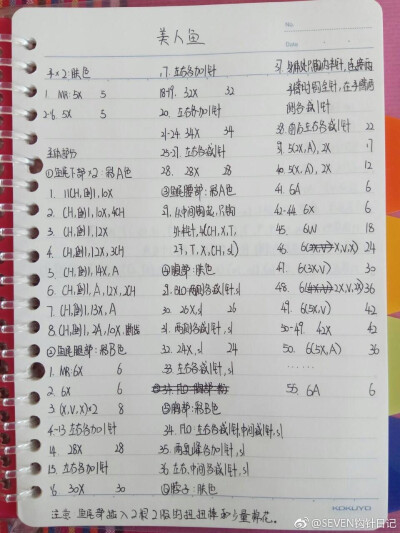 美人鱼
No.
Date
手×2:肤色
1. MR:5X 5
2-6. 5X 5
①鱼尾下部×2:彩A色
1. 11CH,倒1,10X
2. CH,倒1,10X,4CH
3. CH,倒1,12X
4. CH,倒1,12X,3CH
5. CH,倒1,14X,A
6. CH,倒1,A,12X,2CH
7. CH,倒1,13X,A
8. CH,倒1,2A,10X,断线
②鱼尾腿部:彩B色
1. MR:6X 6
2. 6X 6
3. (X,V,X)×2 8
4-13. 左右各加1针
14. 28X 28
15. 左右各加1针
16. 30X 30
17. 左右各加1针
18-19. 32X 32
20. 左右各加1针
21-24. 34X 34
25-27. 左右各减1针
28. 28X 28
③鱼腰部:彩A色
29. 从中间钩起,只钩
外半针,4(CH,X,T,
2T,T,X,CH,sl)
④腹部:肤色
29. BLO:两侧各减1针,sl
30. 26X,sl 26
31. 两侧各减1针,sl
32. 24X,sl 24
33. 左右各减1针,sl
⑤胸部:彩B色
34. FLO:左右各减1针,中间减1针,sl
35. 两乳峰各加1针,sl
36. 左右,中间各减1针,sl
⑥脖子:肤色
37.
手臂时钩全针,在手臂两
间各减1针
38. 前后左右各减1针 22
39. 5(2X,A),2X 17
40. 5(X,A),2X 12
41. 6A 6
42-44. 6X 6
45. 6W 18
46. 6(X,V,X) 24
47. 6(3X,V) 30
48. 6(2X,V,3X) 36
49. 6(5X,V) 42
50-49. 42X 42
50. 6(5X,A) 36
……
55. 6A 6
注意 鱼尾部插入2根2股的扭扭棒和少量棉花。
KOKUYO
@SEVEN钩针日记